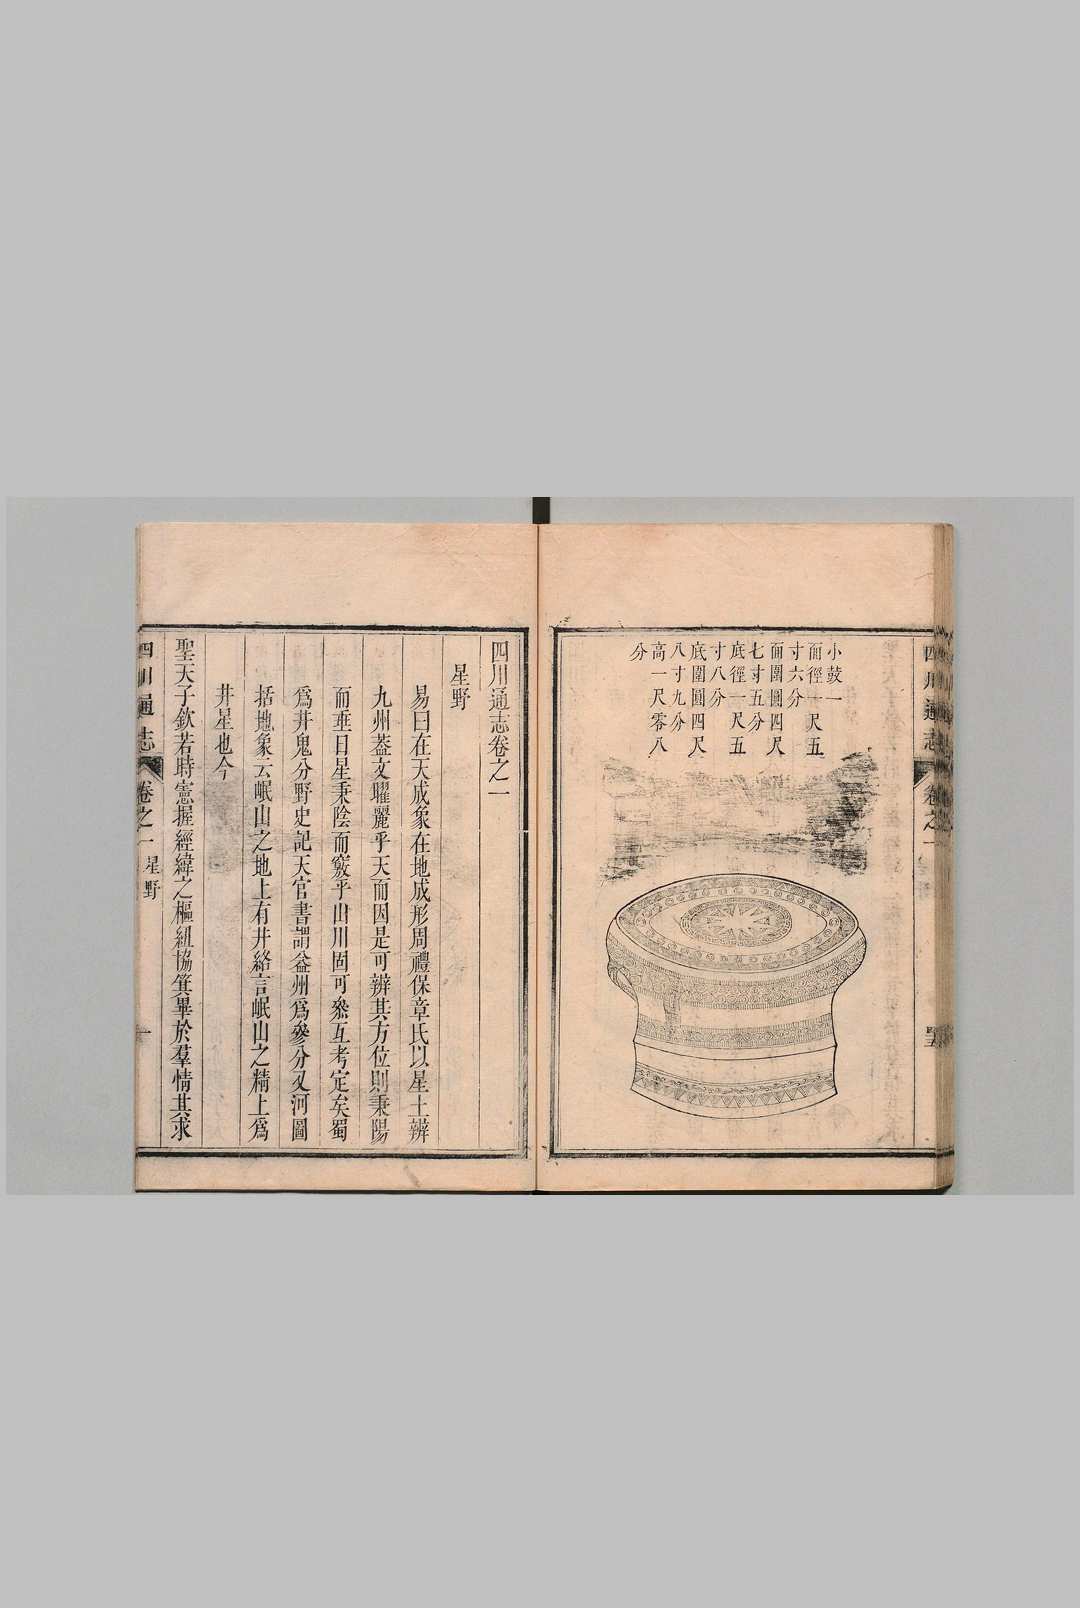 四川通志
卷之一
小鼓一
面徑一尺五
寸六分
面圍圓四尺
七寸五分
底徑一尺五
寸八分
底圍圓四尺
八寸九分
高一尺零八
分
四川通志卷之一
星野
易曰在天成象在地成形周禮保章氏以星土辨
九州蓋文曜麗乎天而因是可辨其方位則秉陽
而垂日星秉陰而竅乎山川固可叅互考定矣蜀
爲井鬼分野史記天官書謂益州爲參分又河圖
括地象云岷山之地上有井絡言岷山之精上爲
井星也今
聖天子欽若時憲握經緯之樞紐協箕畢於羣情其求
四川通志
卷之一
星野
一